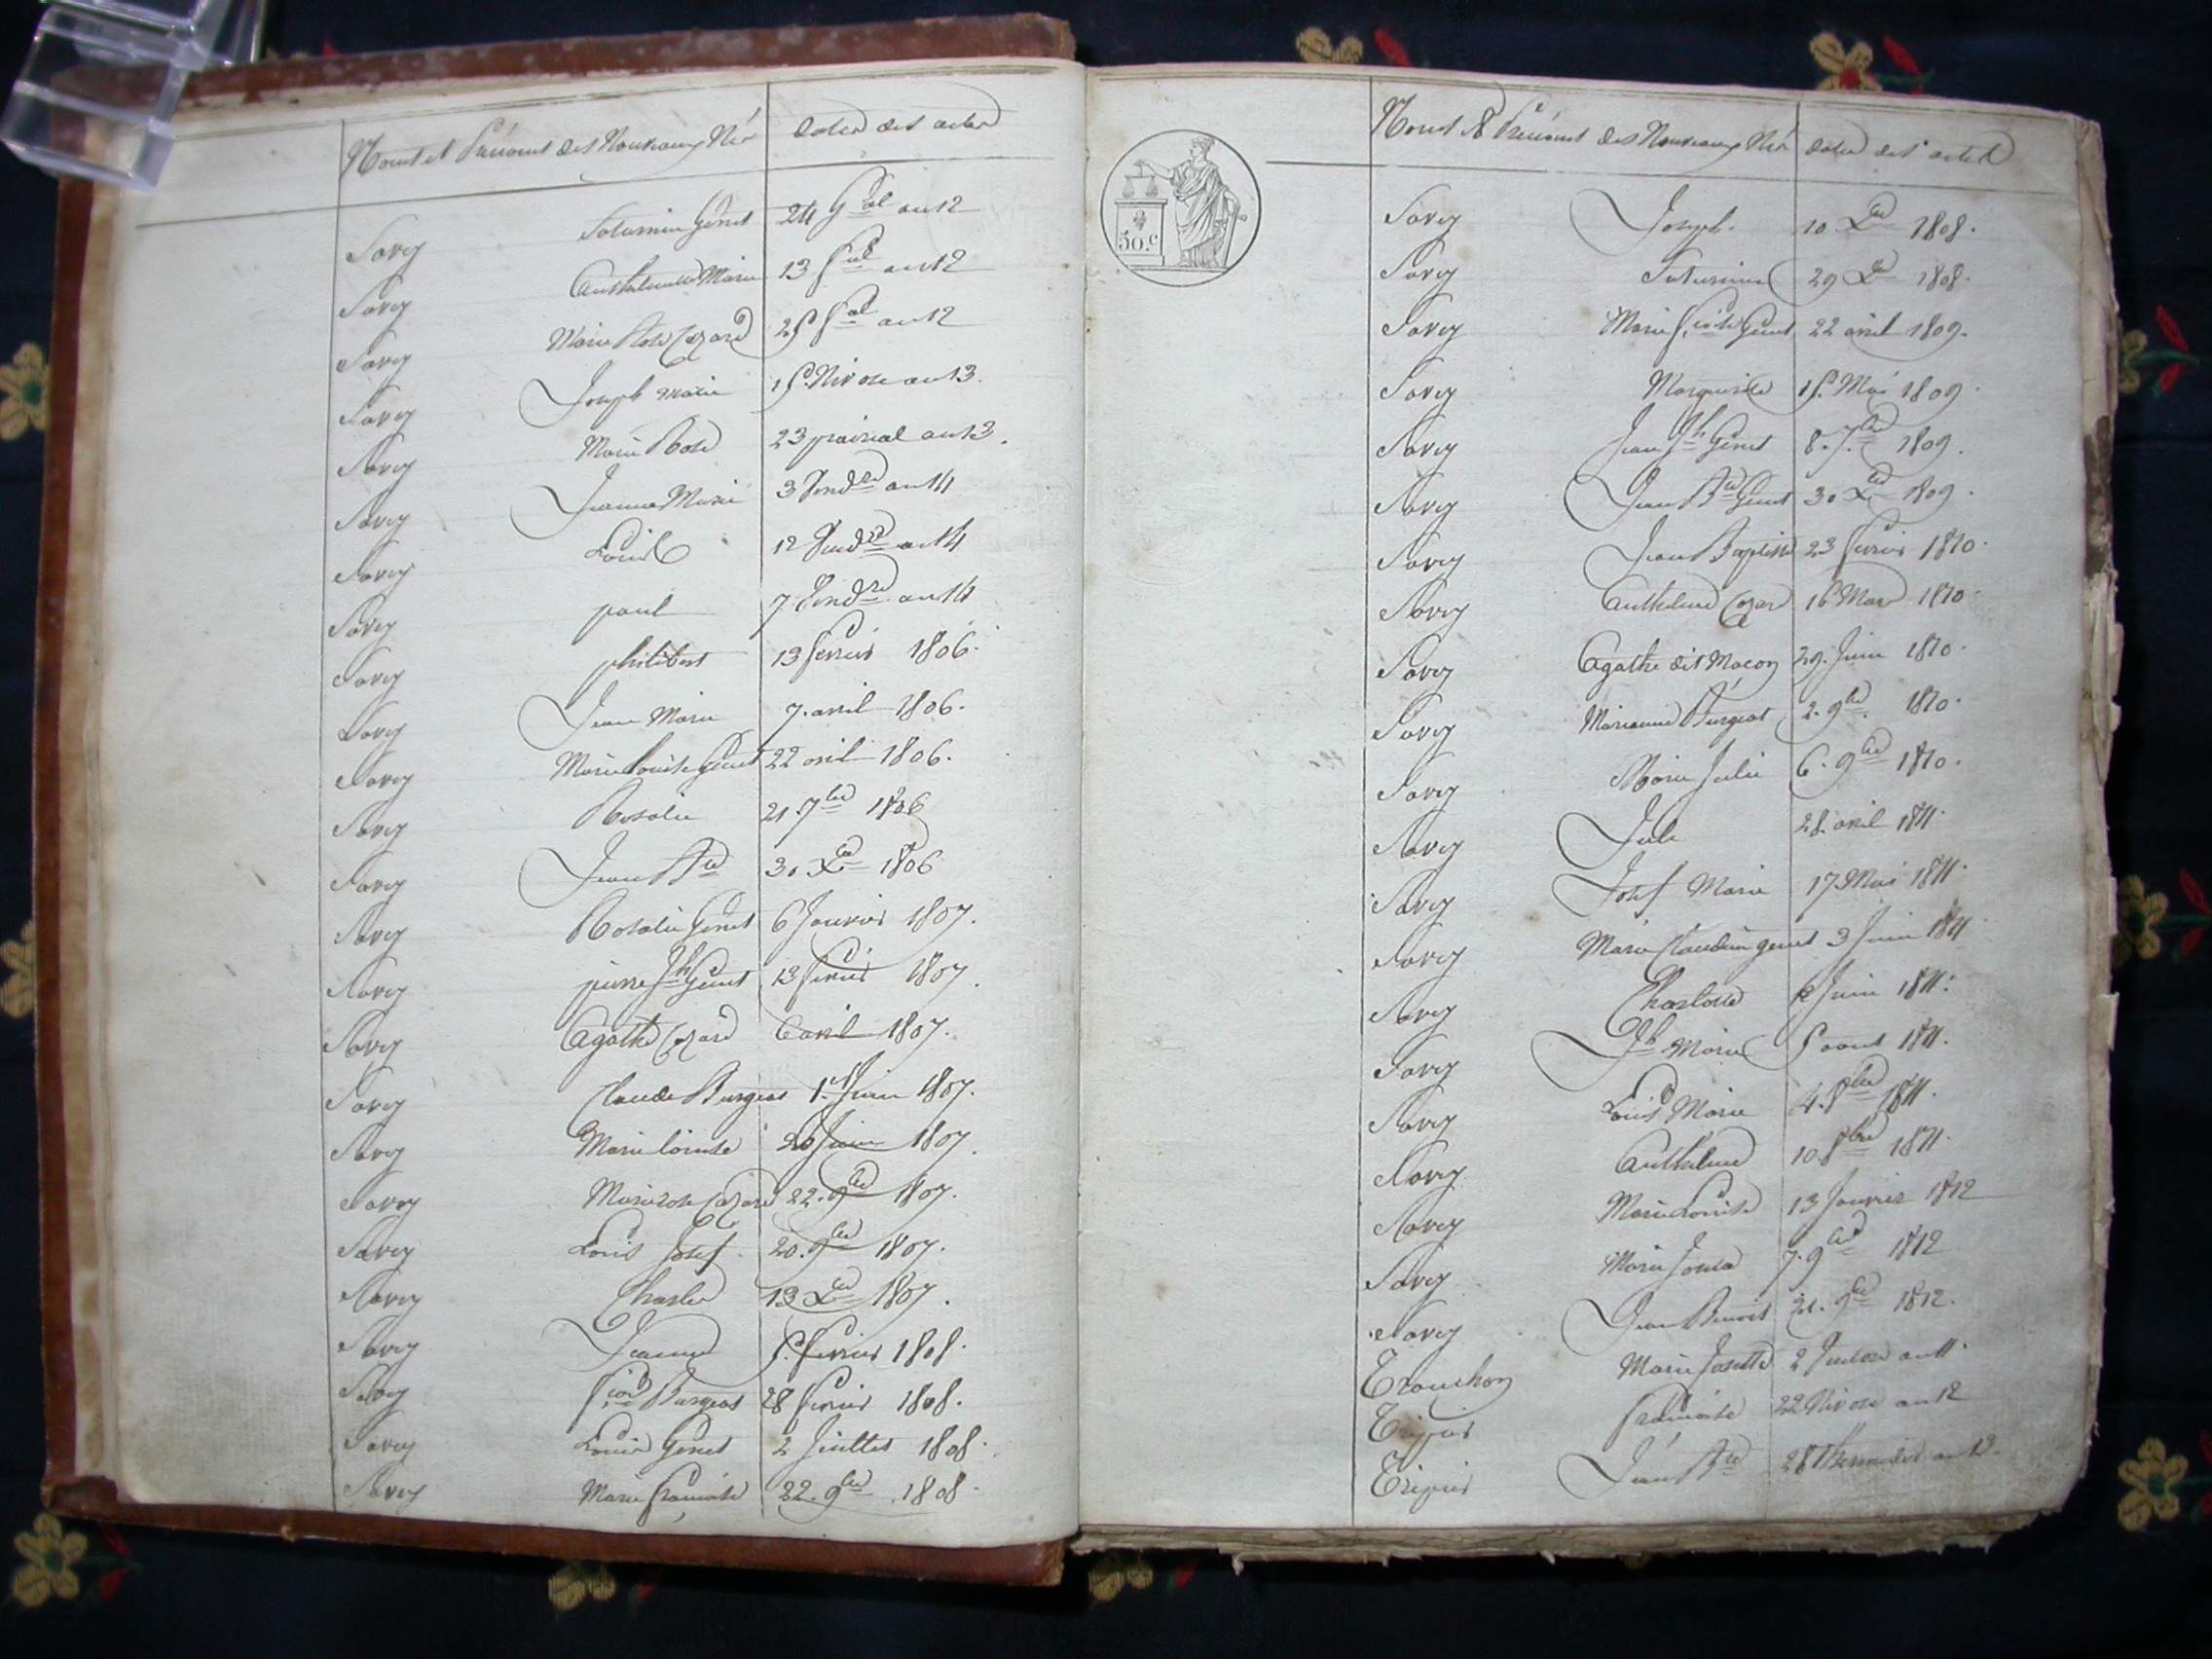 Noms et Prénoms des Nouveaux Nés dates des actes
Savey Saturnin Genet 24 gal an 12
Savey Anthelmette Marie 13 fal an 12
Savey Marie Rose Cozard 25 fal an 12
Savey Joseph Marie 15 Nivose an 13.
Savey Marie Rose 23 prairial an 13.
Savey Jeanne Marie 3 Vendre an 14
Savey Louise 12 Vendre an 14
Savey paul 7 Vendre an 14
Savey philibert 13 fevrier 1806.
Savey Jean Marie 7. avril 1806.
Savey Marie Louise Genet 22 avril 1806.
Savey Rosalie 21. 7bre 1806
Savey Jean Bte 30 Xbre 1806
Savey Rosalie Genet 6 Janvier 1807.
Savey pierre Jh Genet 13 fevrier 1807.
Savey Agathe Cozard 6 avril 1807.
Savey Claude Burgeat 1er Juin 1807.
Savey Marie Louise 20 Juin 1807.
Savey Marie rose Cozard 22. 9bre 1807.
Savey Louis Josef 20. 9bre 1807.
Savey Charles 13 Xbre 1807.
Savey Jeanne 5. fevrier 1808.
Savey Burgeat 28 fevrier 1808.
Savey Louise Genet 2 Juillet 1808.
Savey Marie francoise 22. 9bre 1808.
50.c
Noms & Prénoms des Nouveaux Nés dates des actes
Savey Joseph 10 Xbre 1808.
Savey Saturnine 29 Xbre 1808.
Savey Marie Genet 22 avril 1809.
Savey Marguerite 15. Mai 1809.
Savey Jean Jh Genet 8. 7bre 1809.
Savey Jean Bte Genet 30 Xbre 1809.
Savey Jean Baptiste 23 fevrier 1810.
Savey Anthelme Cozar 16 Mars 1810.
Savey Agathe dit Macon 29. Juin 1810.
Savey Marianne Burgeat 2. 9bre. 1810.
Savey Marie Julie 6. 9bre 1810.
Savey Jule 28. avril 1811.
Savey Josef Marie 17 Mai 1811.
Savey Marie Claudine genet 3 Juin 1811
Savey Charlotte Juin 1811.
Savey Jh Marie 5 aout 1811.
Savey Louis Marie 4. 8bre 1811.
Savey Anthelme 10. 8bre 1811.
Savey Marie Louise 13 Janvier 1812
Savey Marie 7. 9bre 1812
Savey Jean Benoit 21. 9bre 1812.
Trouchon Marie Josette 2 an 11.
Tripier francoise 22 Nivose an 12
Tripier Jean Bte 28 Thermidor an 13.